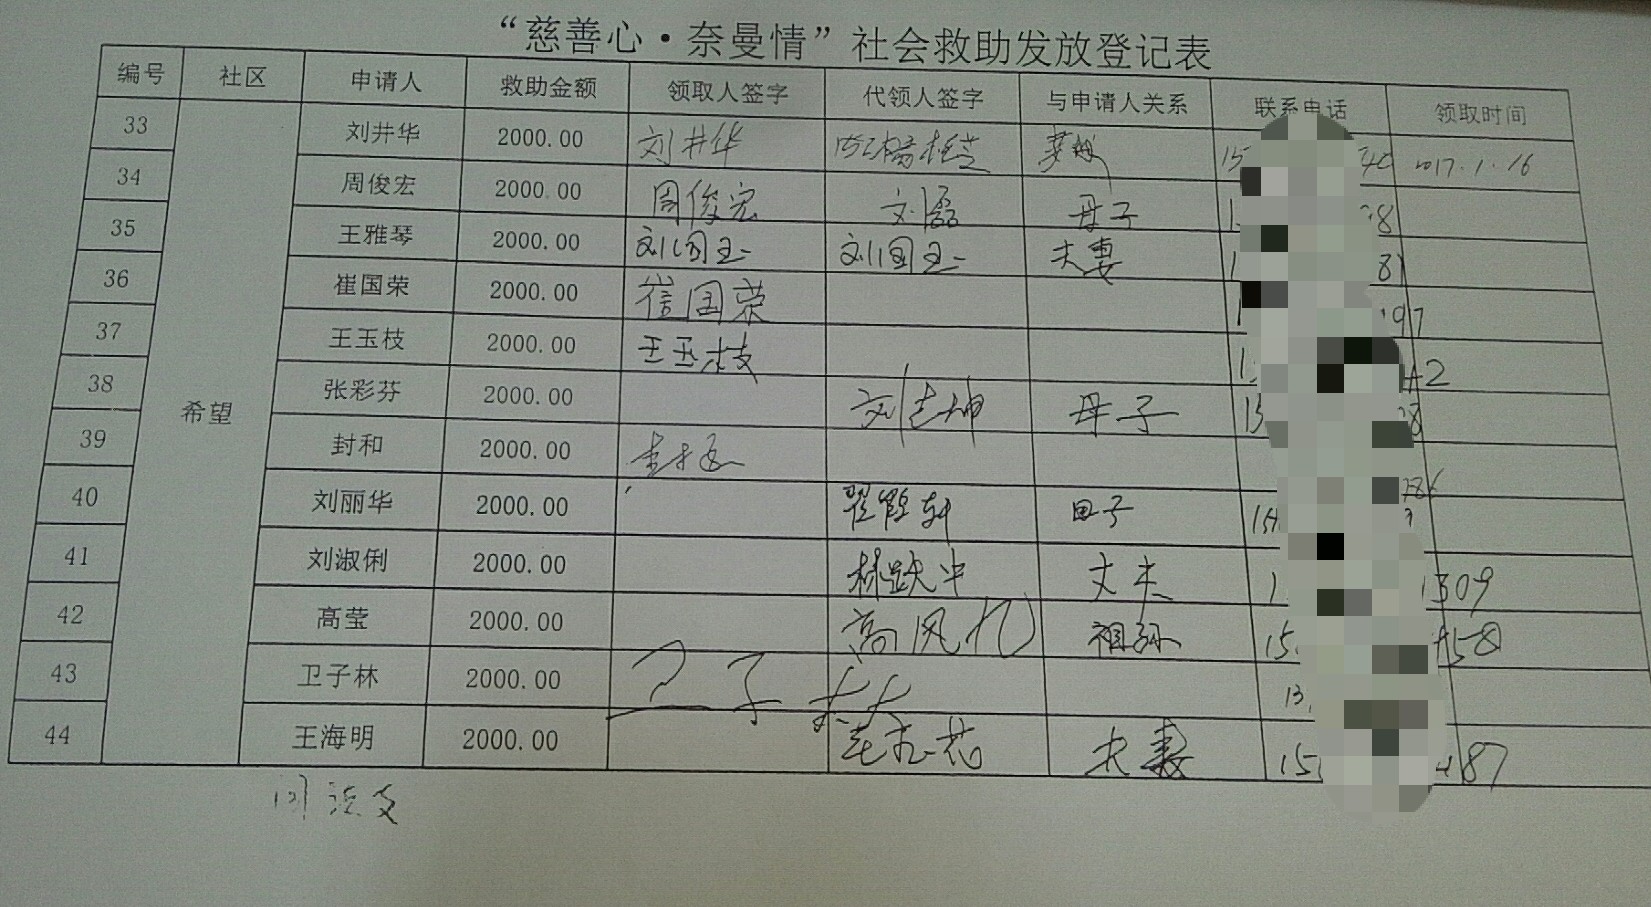 “慈善心·奈曼情”社会救助发放登记表
编号 社区 申请人 救助金额 领取人签字 代领人签字 与申请人关系 联系电话 领取时间
33 刘井华 2000.00 刘井华 15 40 2017.1.16
34 周俊宏 2000.00 周俊宏 刘磊 母子 1 8
35 王雅琴 2000.00 刘国玉 刘国玉 夫妻 1 81
36 崔国荣 2000.00 崔国荣 1 97
37 王玉枝 2000.00 王玉枝 1 42
38 张彩芬 2000.00 刘志坤 母子 15 28
希望
39 封和 2000.00
40 刘丽华 2000.00 母子 15
41 刘淑俐 2000.00 林跃中 丈夫 1 1309
42 高莹 2000.00 高凤 祖孙 15 458
43 卫子林 2000.00 卫子林 13
44 王海明 2000.00 夫妻 15 487